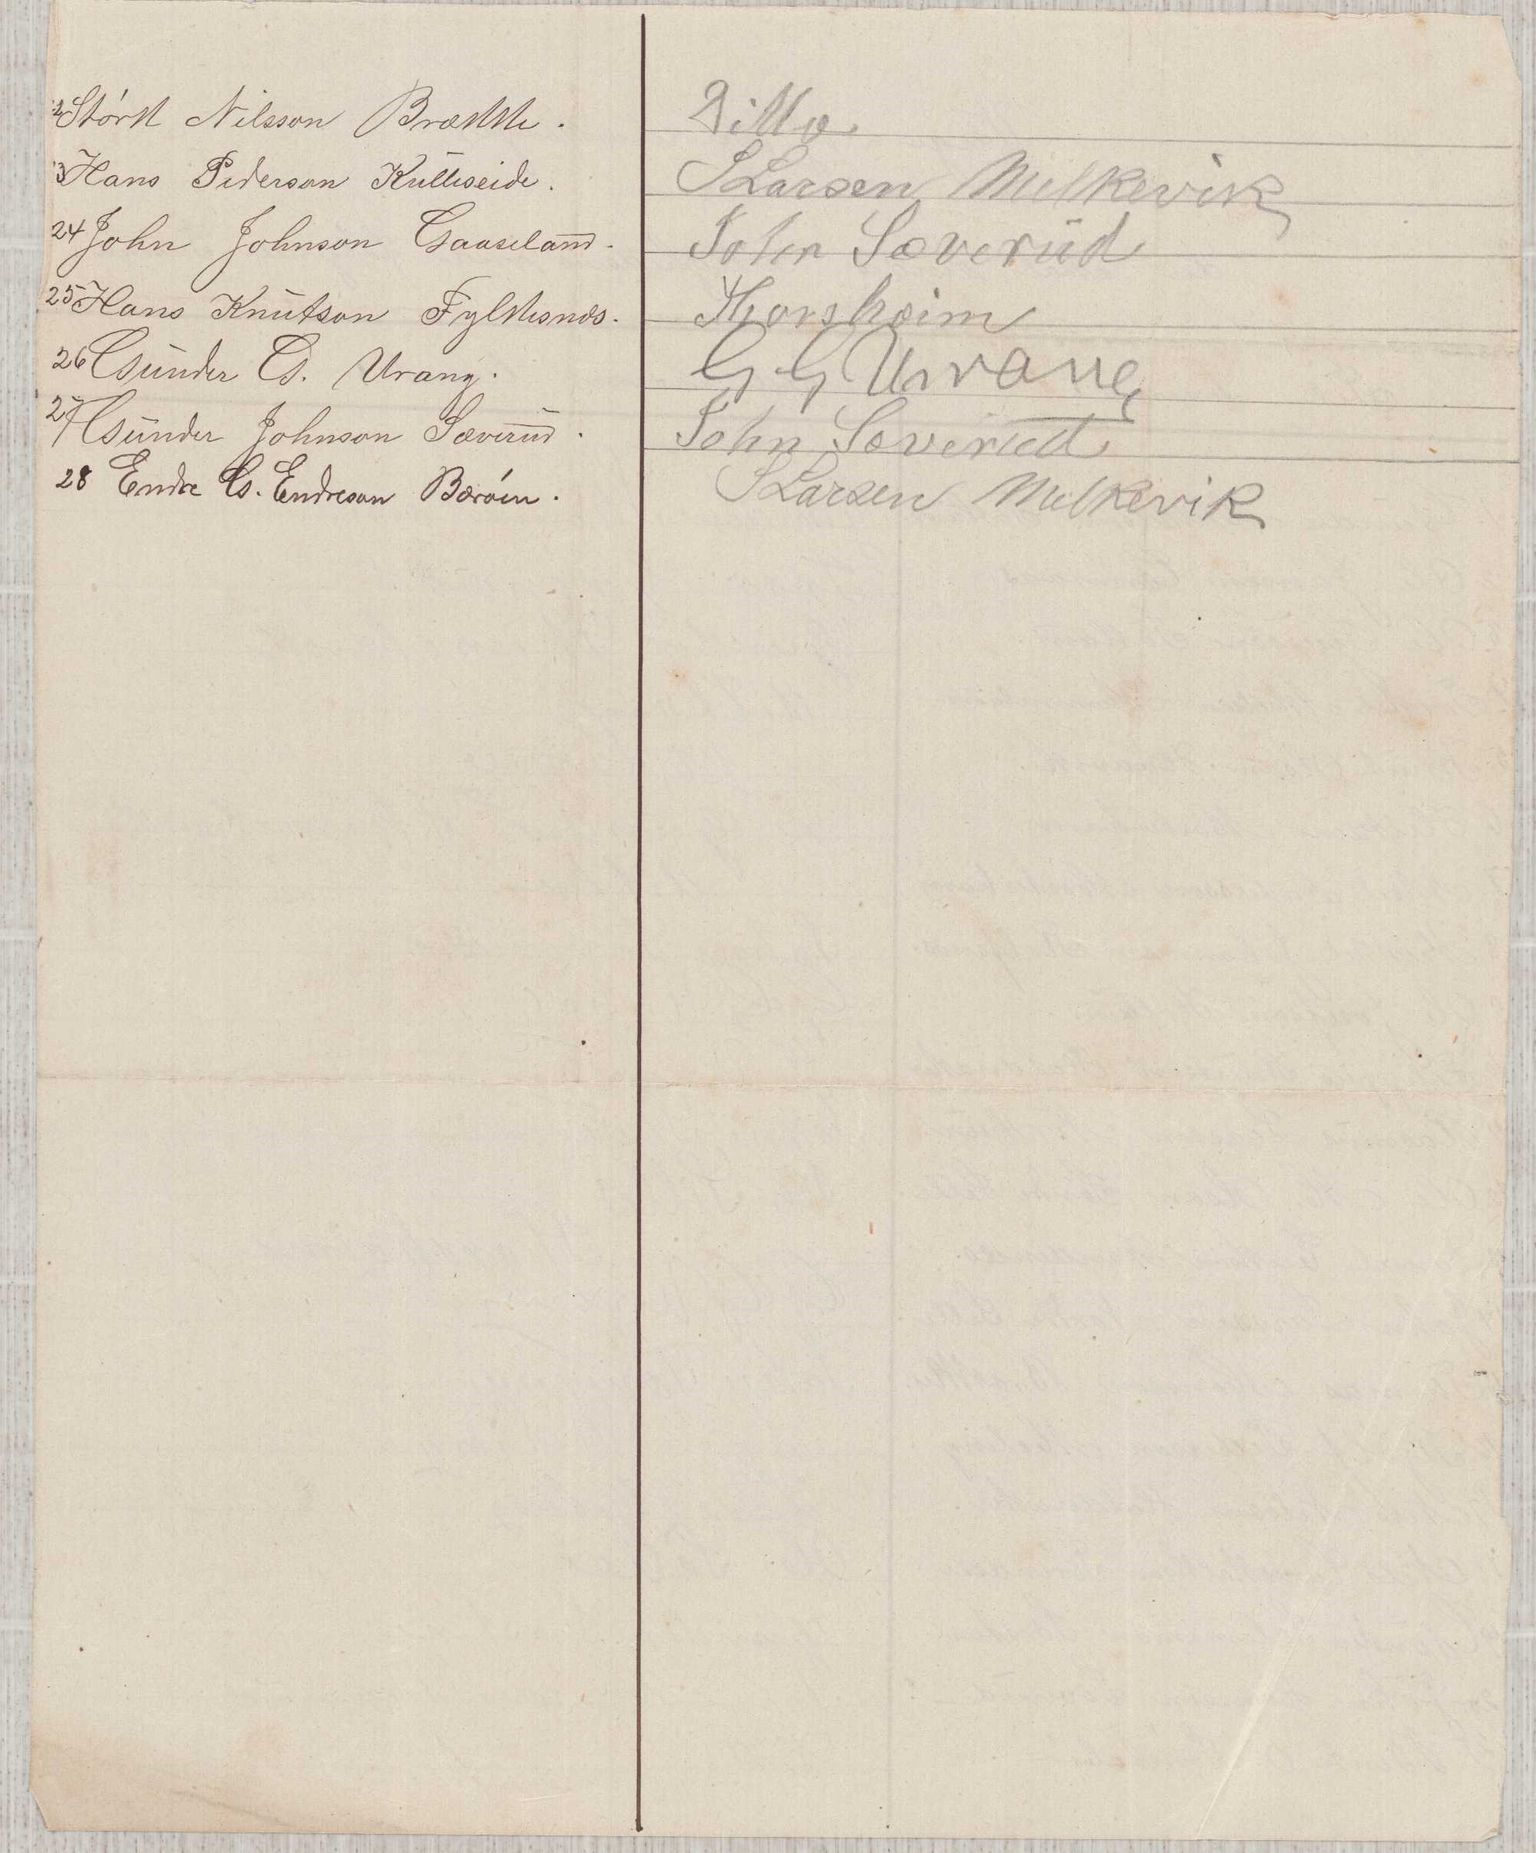 22 Störk Nilsson Brække. Ditto.
23 Hans Pederson Kulleseide. S Larsen Melkevik
24 John Johnson Gaaseland. John Sæverud
25 Hans Knutson Fylkesnæs. Thorsheim
26 Gunder G. Urang. G G Urrang
27 Gunder Johnson Sæverud. John Sæverud
28 Endre G. Endreson Børöen. S Larsen Melkevik